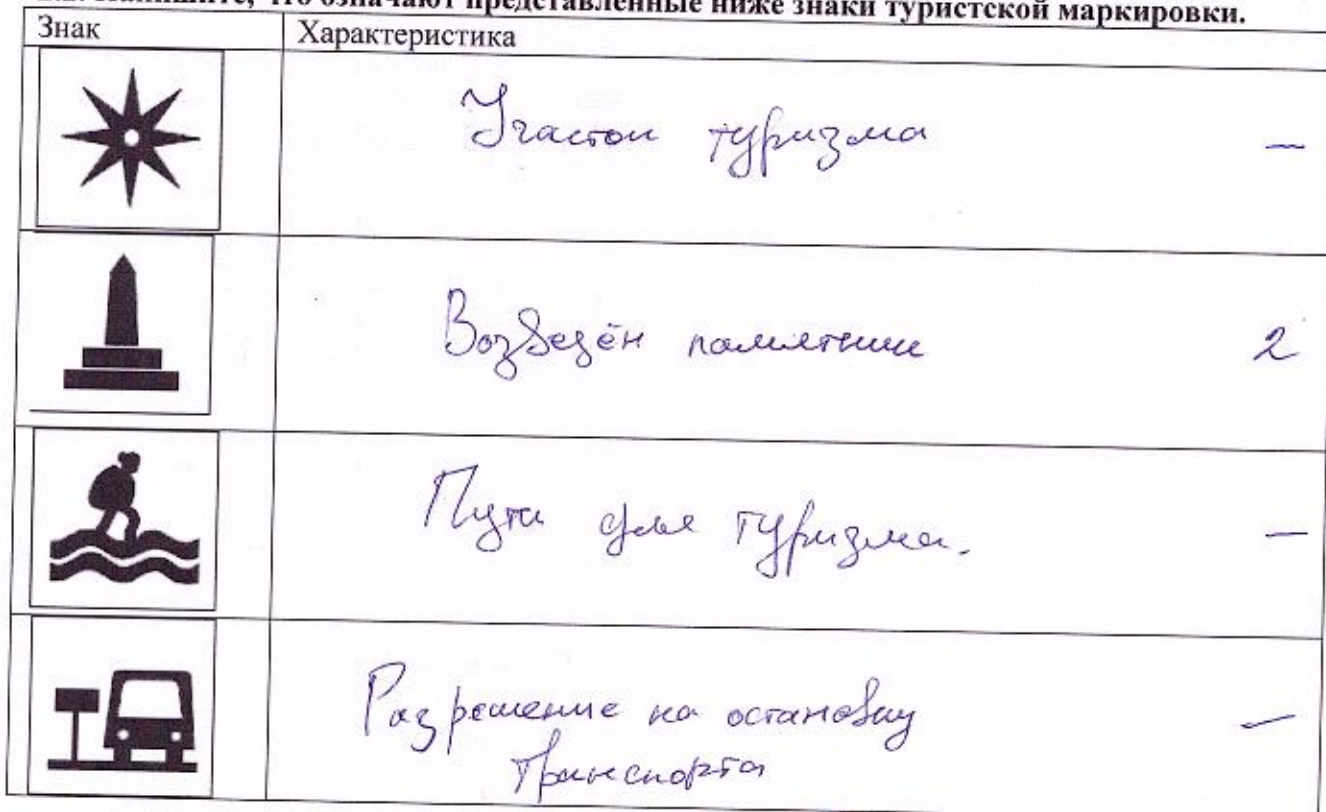 Напишите, что означают представленные ниже знаки туристской маркировки.
Знак Характеристика
Участок туризма —
Возведён памятник 2
Пути для туризма. —
Разрешение на остановку —
транспорта